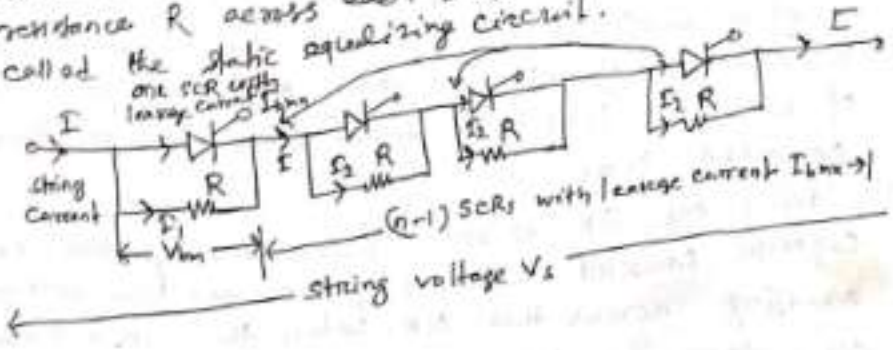 resistance R across
called the static equalizing circuit.
one SCR with
leakage current Ibmn
I
I
String
Current
R
I1
Vbm
I
I2 R
I2 R
I2 R
(n-1) SCRs with leakage current Ibmx
string voltage Vs